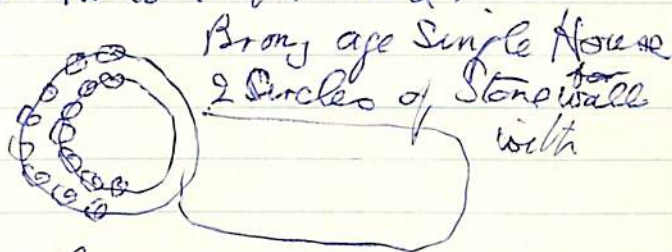 Bronz age Single House
2 Sircles of Stone wall
with